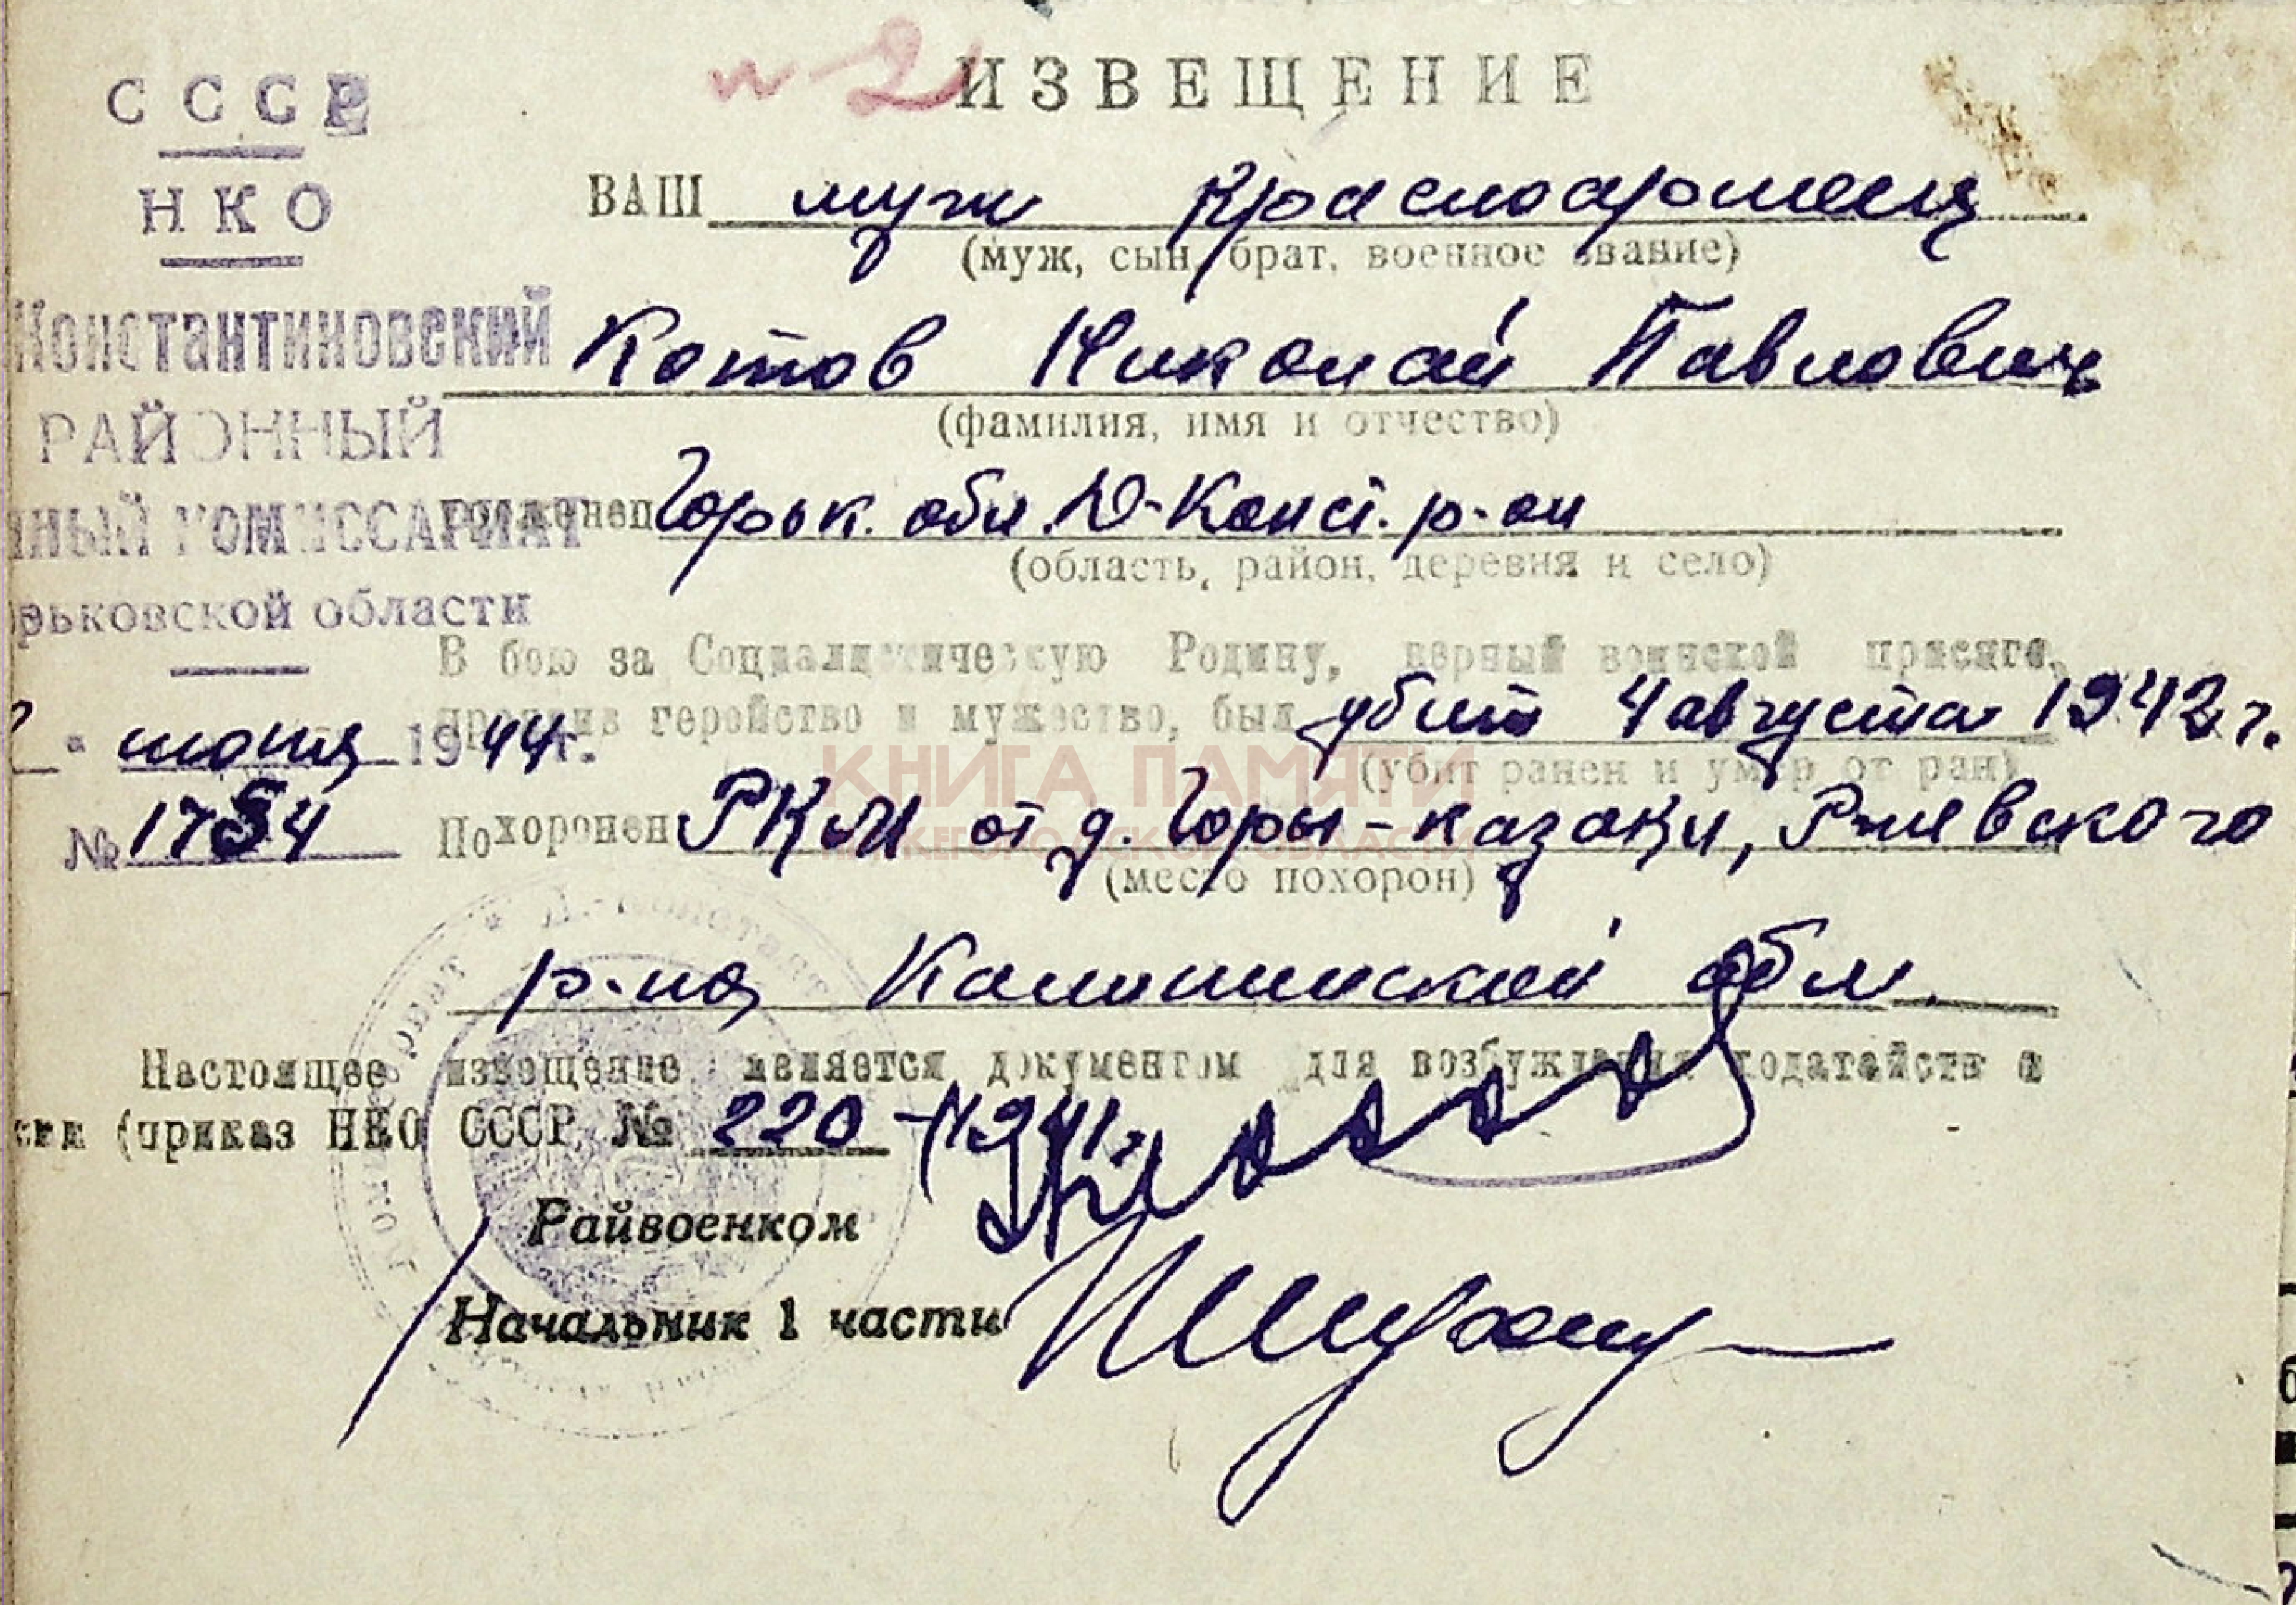 ИЗВЕЩЕНИЕ
СССР
НКО
Константиновский
РАЙОННЫЙ
НЫЙ КОМИССАРИАТ
рьковской области
июня 1944 г.
№ 1754
ВАШ муж красноармеец
(муж, сын, брат, военное звание)
Котов Николай Павлович
(фамилия, имя и отчество)
уроженец Горьк. обл. Д-Конст. р-он
(область, район, деревня и село)
В бою за Социалистическую Родину, верный воинской присяге,
проявив геройство и мужество, был убит 4 августа 1942 г.
(убит ранен и умер от ран)
Похоронен д. Горы-казаки, Ржевского
(место похорон)
р-на Калининской обл.
КНИГА ПАМЯТИ
НИЖЕГОРОДСКОЙ ОБЛАСТИ
Настоящее извещение является документом для возбуждения ходатайств о
сии (приказ НКО СССР № 220 - 1941
Райвоенком
Начальник 1 части